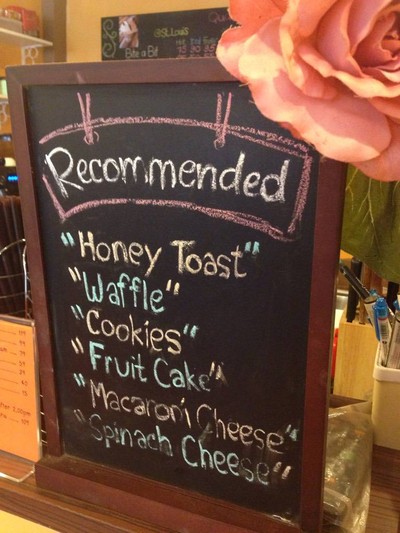 @St.Louis
Bite a Bit
Recommended
"Honey Toast"
"Waffle"
"Cookies"
"Fruit Cake"
"Macaroni Cheese"
"Spinach Cheese"